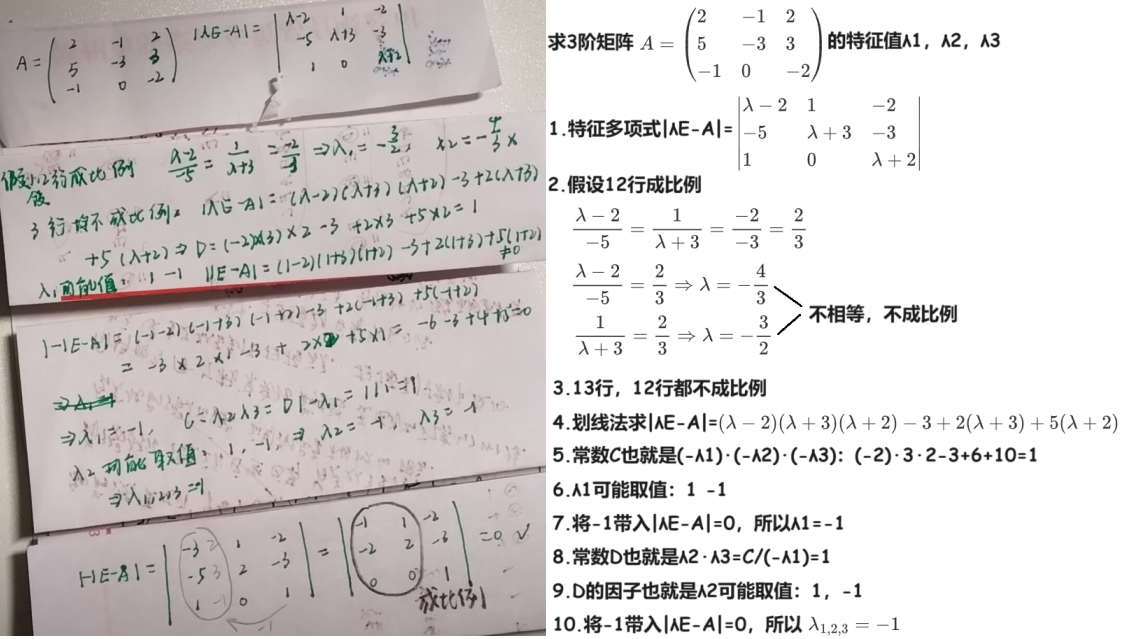 A = ( 2 -1 2 |λE-A| = | λ-2 1 -2
5 -3 3 -5 λ+3 -3
-1 0 -2 ) 1 0 λ+2 |
假设1.2行成比例 λ-2/-5 = 1/λ+3 = -2/-3 ⇒ λ₁ = -3/2, λ2 = -4/3 ×
3行均不成比例. |λE-A| = (λ-2)(λ+3)(λ+2) -3+2(λ+3)
+5(λ+2) ⇒ D = (-2)×(3)×2 -3 +2×3 +5×2 = 1
λ₁可能值: 1 -1 |1E-A| = (1-2)(1+3)(1+2) -3+2(1+3)+5(1+2)
≠0
|-1E-A| = (-1-2)(-1+3)(-1+2) -3 +2(-1+3) +5(-1+2)
= -3×2×1 -3 + 2×2 +5×1 = -6-3+4+5=0
⇒λ₁=-1. C=λ2λ3=
λ2可能取值: 1, -1, ⇒ λ2= -1, λ3= -1
⇒λ1,2,3=-1
|-1E-A| = | -3 1 -2 | = | -1 1 -2 | =0 ✓
-5 2 -3 -2 2 -3
1 0 1 0 0 1
成比例
求3阶矩阵 A = ( 2 -1 2 的特征值λ1，λ2，λ3
5 -3 3
-1 0 -2 )
1.特征多项式|λE-A|= | λ-2 1 -2
-5 λ+3 -3
1 0 λ+2 |
2.假设12行成比例
λ-2/-5 = 1/λ+3 = -2/-3 = 2/3
λ-2/-5 = 2/3 ⇒ λ = -4/3
不相等，不成比例
1/λ+3 = 2/3 ⇒ λ = -3/2
3.13行，12行都不成比例
4.划线法求|λE-A|=(λ-2)(λ+3)(λ+2)-3+2(λ+3)+5(λ+2)
5.常数C也就是(-λ1)·(-λ2)·(-λ3)：(-2)·3·2-3+6+10=1
6.λ1可能取值：1 -1
7.将-1带入|λE-A|=0，所以λ1=-1
8.常数D也就是λ2·λ3=C/(-λ1)=1
9.D的因子也就是λ2可能取值：1，-1
10.将-1带入|λE-A|=0，所以 λ1,2,3 = -1